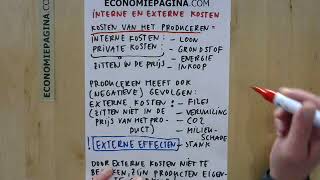 ECONOMIEPAGINA.COM
ECONOMIEPAGINA.COM
INTERNE EN EXTERNE KOSTEN
KOSTEN VAN HET PRODUCEREN =
INTERNE KOSTEN: - LOON
PRIVATE KOSTEN: - GRONDSTOF
- ENERGIE
ZITTEN IN DE PRIJS - INKOOP
PRODUCEREN HEEFT OOK
(NEGATIEVE) GEVOLGEN:
EXTERNE KOSTEN: - FILES
(ZITTEN NIET IN DE - VERVUILING
PRIJS VAN HET PRO- - CO2
DUCT) - MILIEU-
SCHADE
! EXTERNE EFFECTEN - STANK
DOOR EXTERNE KOSTEN NIET TE
ZIJN PRODUCTEN EIGEN-